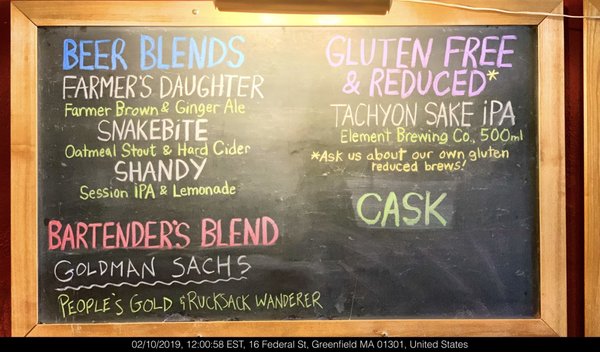 BEER BLENDS
FARMER'S DAUGHTER
Farmer Brown & Ginger Ale
SNAKEBiTE
Oatmeal Stout & Hard Cider
SHANDY
Session IPA & Lemonade
BARTENDER'S BLEND
GOLDMAN SACHS
PEOPLE'S GOLD & RUCKSACK WANDERER
GLUTEN FREE
& REDUCED*
TACHYON SAKE iPA
Element Brewing Co., 500ml
*Ask us about our own gluten
reduced brews!
CASK
02/10/2019, 12:00:58 EST, 16 Federal St, Greenfield MA 01301, United States